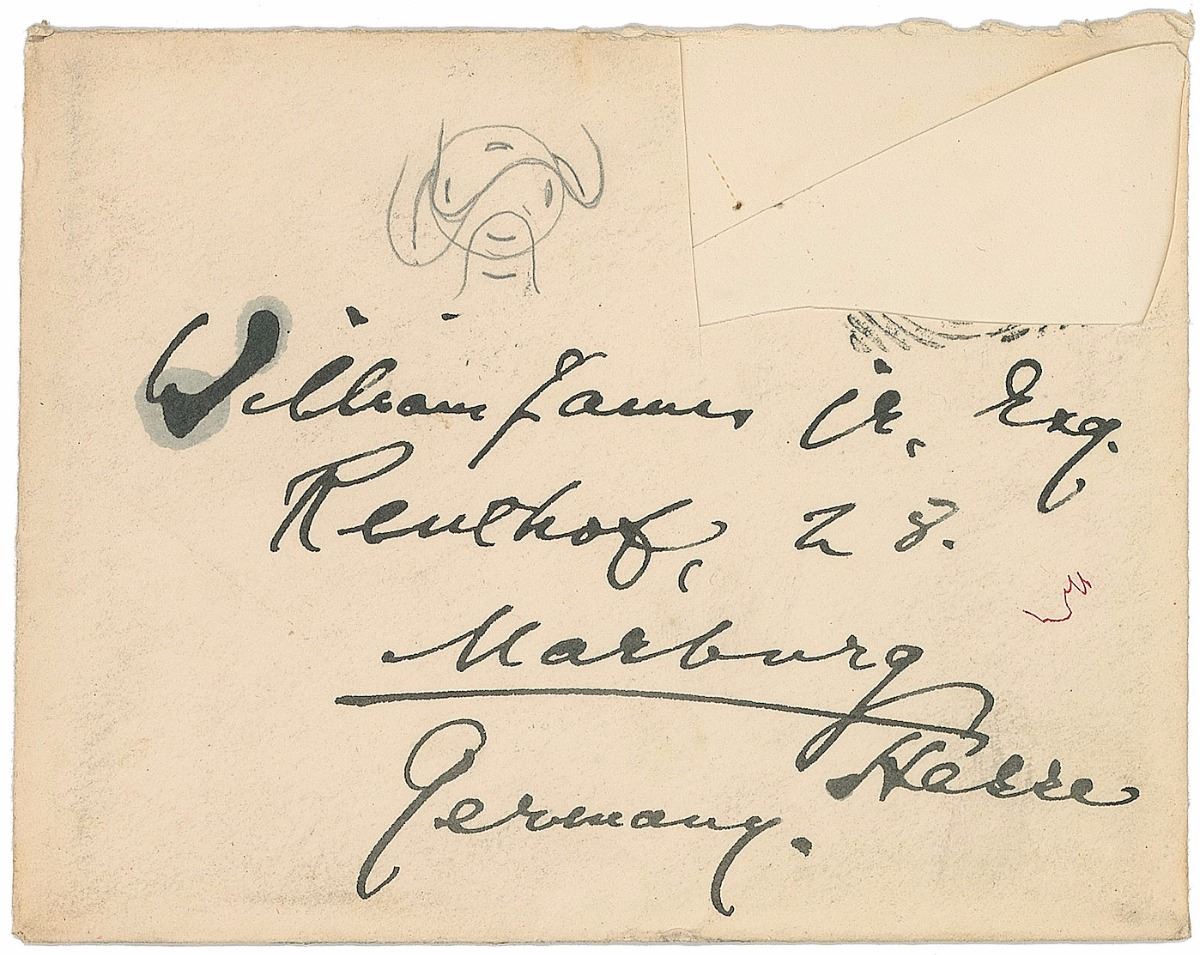 William James jr, Esq.
Renthof, 28.
Marburg
Hesse
Germany.